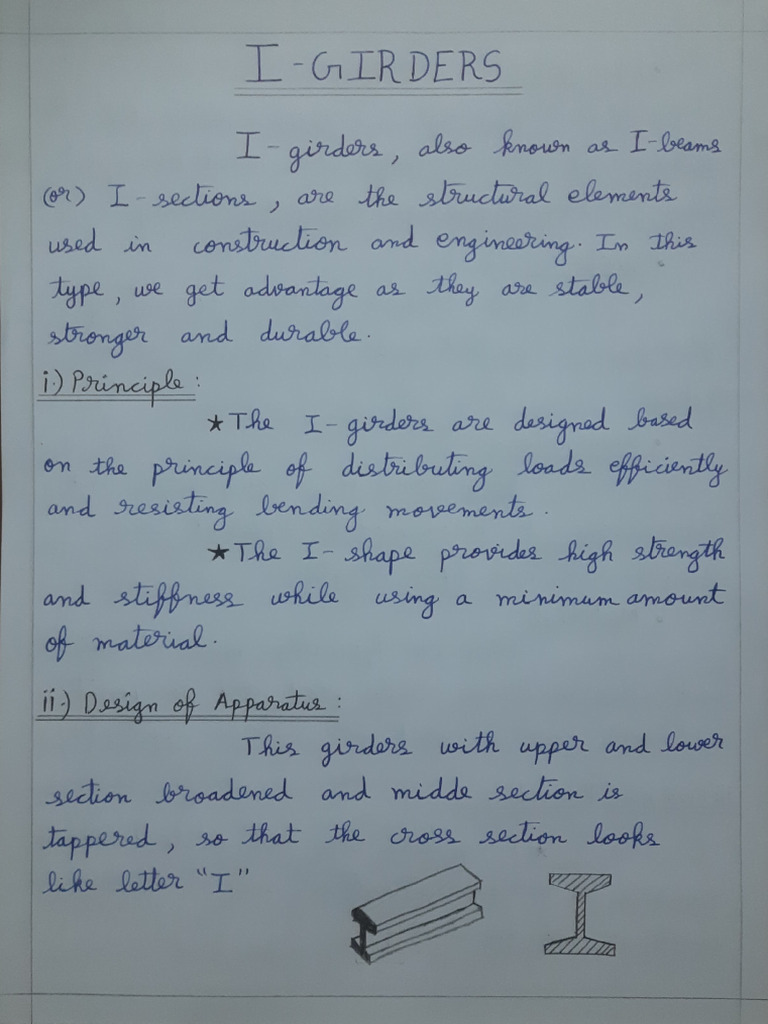 I-GIRDERS
I-girders, also known as I-beams
(or) I-sections, are the structural elements
used in construction and engineering. In this
type, we get advantage as they are stable,
stronger and durable.
i.) Principle:
★The I-girders are designed based
on the principle of distributing loads efficiently
and resisting bending movements.
★The I-shape provides high strength
and stiffness while using a minimum amount
of material.
ii.) Design of Apparatus:
This girders with upper and lower
section broadened and midde section is
tappered, so that the cross section looks
like letter "I"